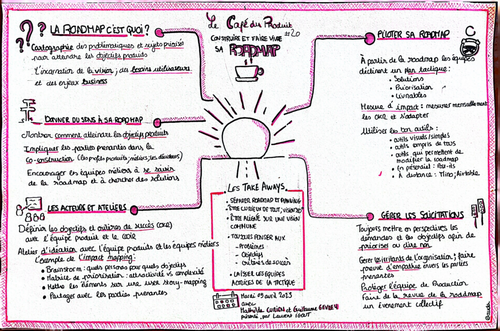 LA ROADMAP C'EST QUOI?
Cartographie des problématiques et sujets priorisés
pour atteindre les objectifs produits
L'incarnation de la vision, des besoins utilisateurs
et des enjeux business
DONNER DU SENS À SA ROADMAP
Montrer comment atteindre les objectifs produits
Impliquer les parties prenantes dans la
Co-construction
Encourager les équipes métiers à se saisir
de la roadmap et à chercher des solutions
LES ACTEURS ET ATELIERS
Définir les objectifs et critères de succès (OKR)
avec l'équipe Produit et le
Atelier d'idéation avec l'équipe produits et les équipes métiers
Exemple de l'impact mapping:
Brainstorm: quels personas pour quels objectifs
Matrice de priorisation: attractivité vs complexité
Mettre les éléments sur une user story-mapping
Partager avec les parties prenantes
Le Café du Produit
#20
CONSTRUIRE ET FAIRE VIVRE
SA ROADMAP
LES TAKE AWAYS.
SÉPARER ROADMAP ET PLANNING
ÊTRE ALIGNÉ SUR UNE VISION
COMMUNE
TOUJOURS PENSER AUX
Problèmes
Objectifs
Critères de succès
LAISSER LES ÉQUIPES
ACTRICES DE LA TACTIQUE
Mardi 2023
avec
Mathilde et Guillaume
PILOTER SA ROADMAP
À partir de la roadmap les équipes
déclinent un plan tactique:
Solutions
Priorisation
Livrables
Mesure d'impact: mesurer mensuellement
les OKR et s'adapter
Utiliser les bons outils:
outils visuels/simples
outils compris de tous
outils qui permettent de
modifier la roadmap
En présentiel: Post-its
À distance: Miro, Airtable
GÉRER LES SOLLICITATIONS
Toujours mettre en perspectives les
demandes et les objectifs afin de
prioriser ou dire non
Gérer les irritants de l'organisation; faire
preuve d'empathie envers les parties
prenantes
Protéger l'équipe de Production
Faire de la revue de la roadmap
un événement collectif